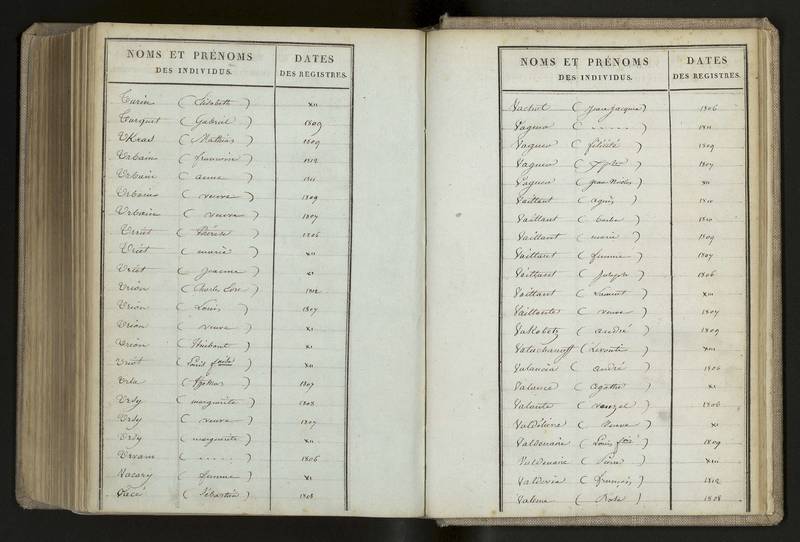 NOMS ET PRÉNOMS
DES INDIVIDUS.
DATES
DES REGISTRES.
Turin (Elisabeth) XII
Turquet (Gabriel) 1809
Ukras (Mathias) 1809
Urbain (francoise) 1812
Urbain (anne) 1811
Urbain (veuve) 1809
Urbain (veuve) 1807
Urriet (thérèse) 1806
Uriet (marie) XII
Uriet (jeanne) XI
Urion (Charles) 1812
Urion (Louis) 1807
Urion (veuve) XI
Urion (Thiebaut) XI
Uriot (Louis) XII
Ursa 1807
Ursy (marguerite) 1808
Ursy (veuve) 1807
Ursy (marguerite) XII
Urvam (.....) 1806
Vacary (femme) XI
Vacé (Sébastien) 1808
NOMS ET PRÉNOMS
DES INDIVIDUS.
DATES
DES REGISTRES.
Vachut (Jean Jacques) 1806
Vagner (.....) 1811
Vagner (félicité) 1809
Vagner 1807
Vagner (Jean Nicolas) XII
Vaillant (agnès) 1810
Vaillant (barbe) 1810
Vaillant (marie) 1809
Vaillant (femme) 1807
Vaillant (Joseph) 1806
Vaillant (Laurent) XIII
Vaillante (veuve) 1807
Vakobetz (andré) 1809
(Levonti) XIII
Valancia (andré) 1806
Valance (agathe) XI
Valante (venzel) 1806
Valdeliene (veuve) XI
Valdenaire (Louis) 1809
Valdenaire (Pierre) XIII
Valdevia (françois) 1812
Valeme (Rose) 1808